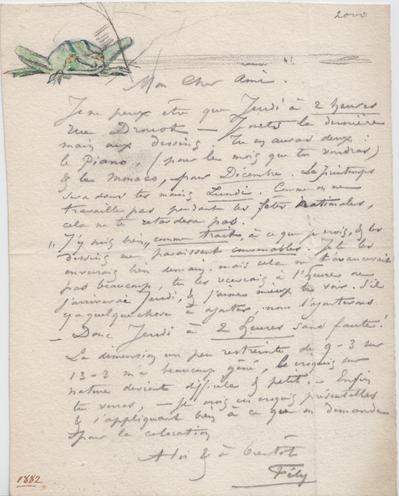 2000
Mon Cher Ami.
Je ne peux être que Jeudi à 2 heures
rue Drouot — Je mets la dernière
main aux dessins. Tu en auras deux :
le Piano, (pour le mois que tu voudras)
& le Monaco, pour Décembre. Le printemps
sera dans tes mains Lundi. Comme on ne
travaille pas pendant les fêtes Nationales,
cela ne te retardera pas.
J'y suis bien, comme traité, à ce que je vois, & les
dessins me paraissent convenables. Je te les
enverrais bien demain, mais cela ne t'avancerait
pas beaucoup, tu les recevrais à l'heure où
j'arriverai Jeudi, & j'aime mieux te voir. S'il
y a quelque chose à ajouter, nous l'ajouterons
— Donc Jeudi à 2 heures sans faute!
La dimension un peu restreinte de 9-3 sur
13-3 m'a beaucoup gêné, le croquis sur
nature devient difficile & petit. — Enfin
tu verras, — je crois ces croquis présentables
& s'appliquant bien à ce que on demande
pour la coloration
A toi & à bientôt
Fély
1882